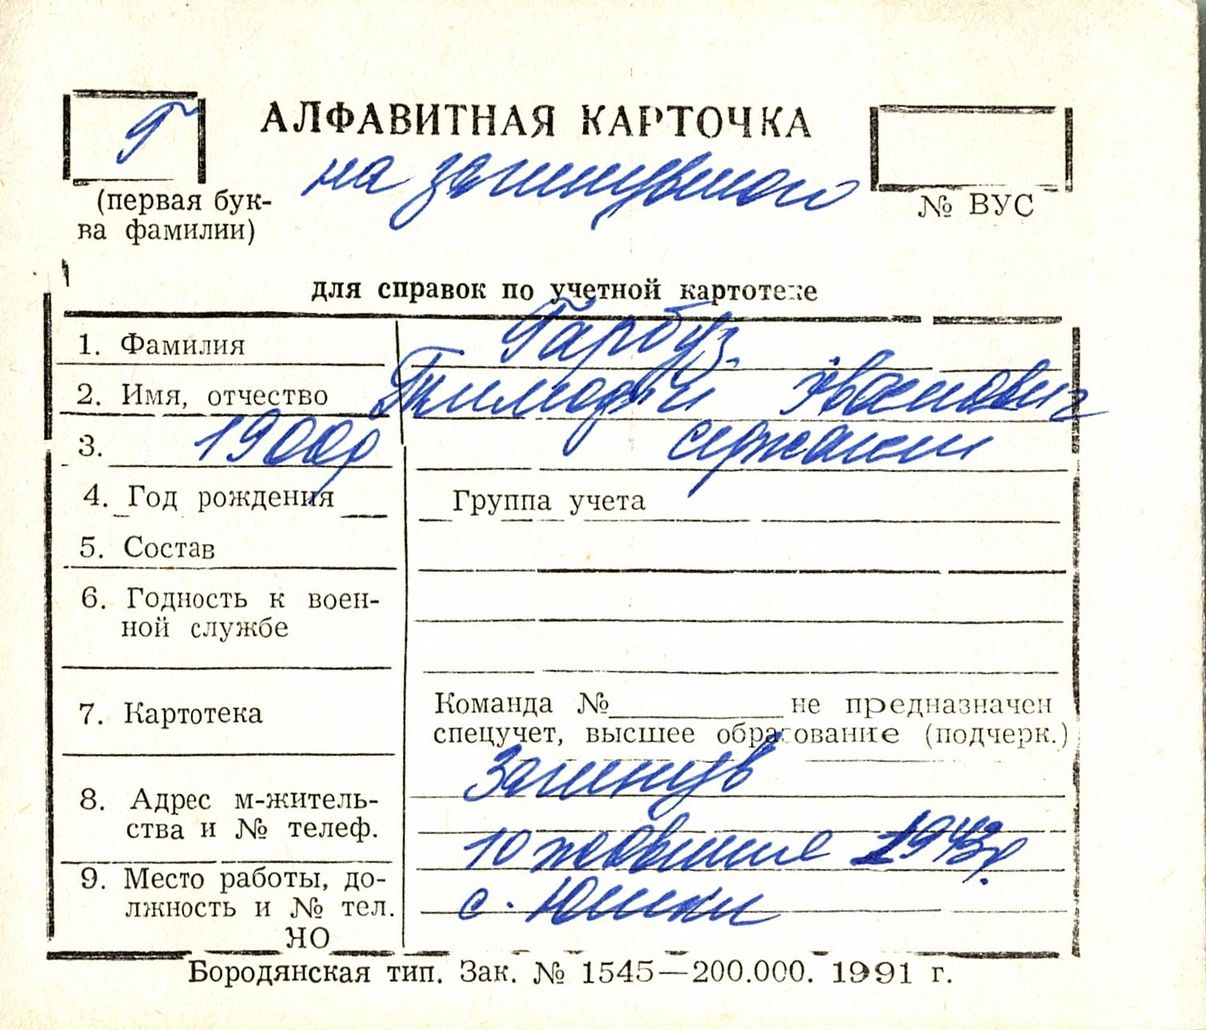 Г
АЛФАВИТНАЯ КАРТОЧКА
на загинувшого
(первая бук-
ва фамилии)
№ ВУС
для справок по учетной картотеке
1. Фамилия Гарбуз
2. Имя, отчество Тимофій Іванович
3. 1900р сержант
4. Год рождения Группа учета
5. Состав
6. Годность к воен-
ной службе
7. Картотека
Команда № не предназначен
спецучет, высшее образование (подчерк.)
Загинув
8. Адрес м-житель-
ства и № телеф.
10 жовтня 1943р.
9. Место работы, до-
лжность и № тел.
с. Юшки
НО
Бородянская тип. Зак. № 1545—200.000. 1991 г.